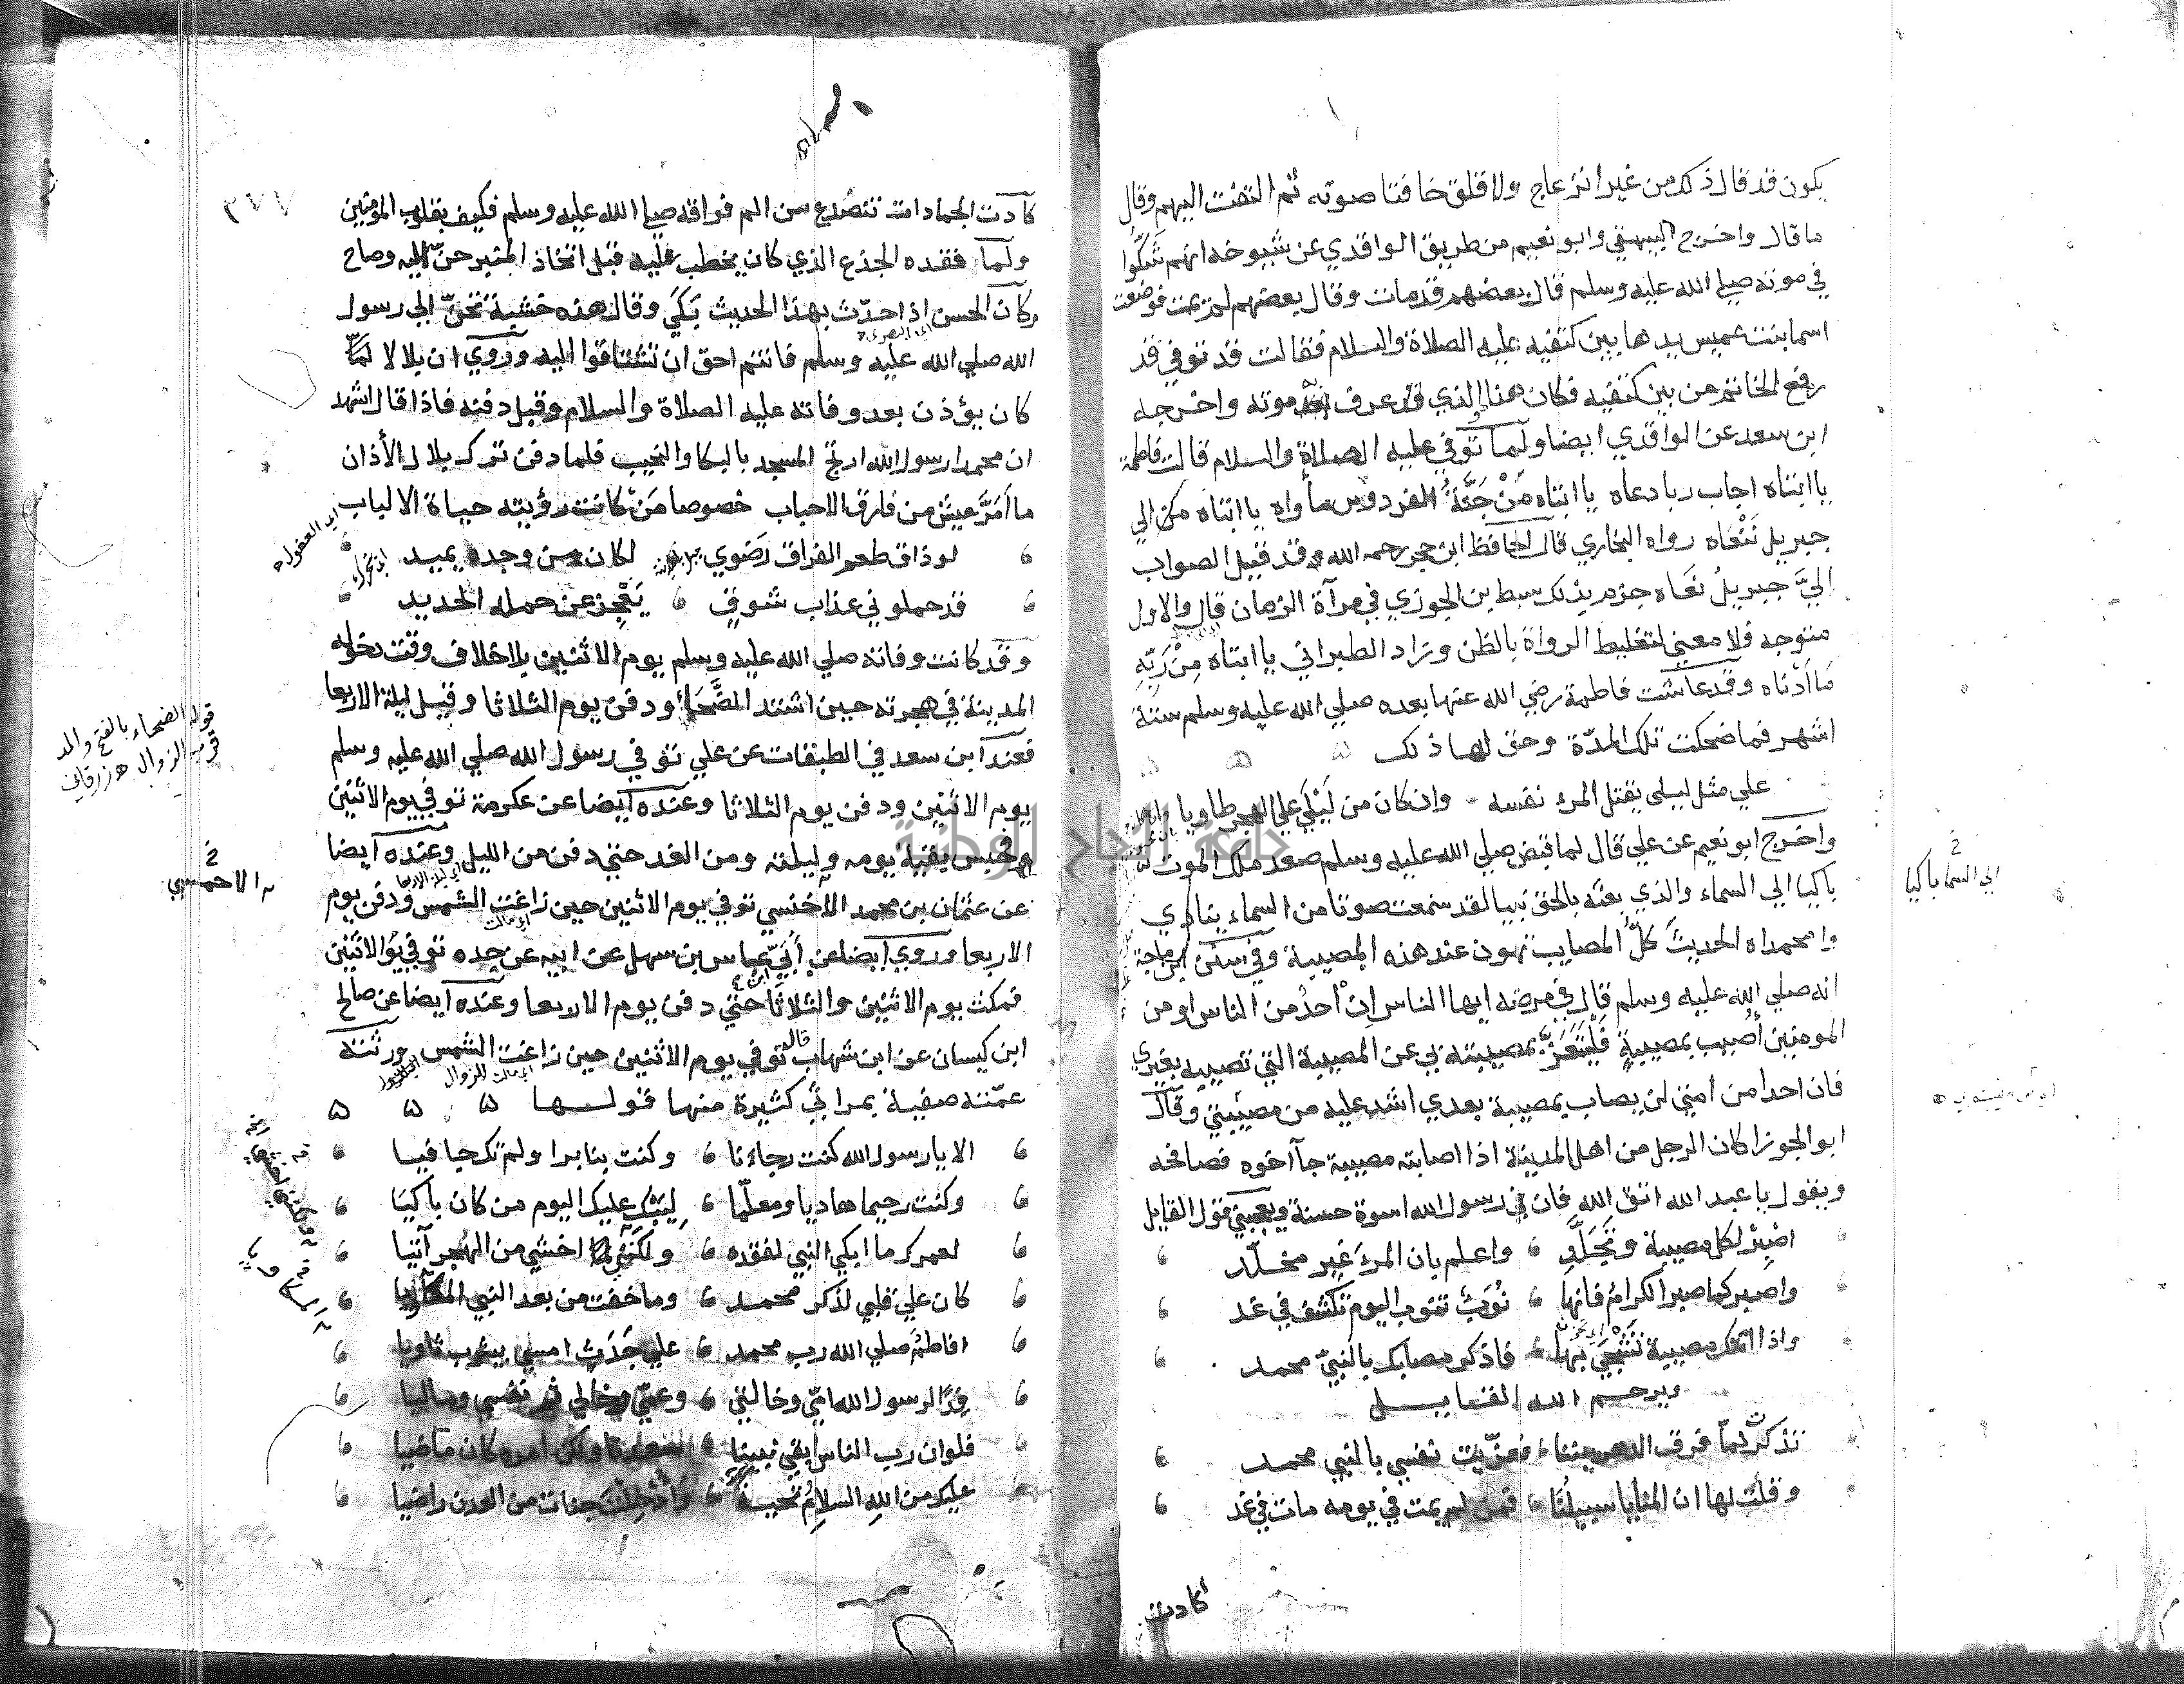 يكون قد قال ذلك من غير انزعاج ولا قلق خافتا صوته ثم التفت اليهم وقال
ما قال واخرج البيهقي وابو نعيم من طريق الواقدي عن شيوخه انهم شَكُّوا
في موته صلى الله عليه وسلم قال بعضهم قد مات وقال بعضهم لم يمت فوضعت
اسما بنت عميس يدها بين كتفيه عليه الصلاة والسلام فقالت قد توفي قد
رفع الخاتم من بين كتفيه فكان هذا الذي قد عرف به موته واخرجه
ابن سعد عن الواقدي ايضا ولما توفي عليه الصلاة والسلام قالت فاطمة
يا ابتاه اجاب ربا دعاه يا ابتاه مَنْ جَنَّةُ الفردوس مأواه يا ابتاه من الى
جبريل نَنْعَاه رواه البخاري قال الحافظ ابن حجر رحمه الله وقد قيل الصواب
اليَّ جبريلُ نعَاه جزم بذلك سبط بن الجوزي في مرآة الزمان قال والاول
متوجه فلا معنى لتغليط الرواة بالظن وزاد الطبراني يا ابتاه مِنْ رَبِّهِ
مَا أدْناه وقد عاشت فاطمة رضي الله عنها بعده صلى الله عليه وسلم ستة
اشهر فما ضحكت تلك المدّة وحق لها ذلك
على مثل ليلى يقتل المرء نفسه وان كان من لَيْلَى على الهجر طاويا
واخرج ابو نعيم عن علي قال لما قبض صلى الله عليه وسلم صعد ملك الموت
باكيا الى السماء والذي بعثه بالحق نبيا لقد سمعت صوتا من السماء ينادي
وا محمداه الحديثَ كلُّ المصايب تهون عند هذه المصيبة وفي سنن ابن ماجة
انه صلى الله عليه وسلم قال في مرضه ايها الناس اِنْ احدٌ من الناس او من
المومنين أُصيب بمصيبةٍ فَلْيَتَعَزَّ بمصيبته بي عن المصيبة التي تصيبه بغيري
فان احدا من امتي لن يصاب بمصيبة بعدي اشد عليه من مصيبتي وقال
ابو الجوزا كان الرجل من اهل المدينة اذا اصابته مصيبة جآ اخوه فصافحه
ويقول يا عبد الله اتق الله فان في رسول الله اسوة حسنة ويعجبني قول القايل
اصْبِرْ لكل مصيبة وتَجَلَّدِ واعلم بان المرءَ غير مخلّد
واصبر كما صبر الكرامُ فانها نُوَبٌ تنوب اليوم تكشف في غد
واذا اتتك مصيبة تَشْجَى بها فاذكر مصابك بالنبيّ محمد
ويرحم الله القايل
تذكرتُ لمّا فرق الدهر بيننا فعزّيت نفسي بالنبي محمد
وقلت لها ان المنايا سبيلُنَا فمن لم يمت في يومه مات في غد
كادت
الى السما باكيا
٣٧٧
كادت الجمادات تتصدع من الم فراقه صلى الله عليه وسلم فكيف بقلوب المومنين
ولما فقده الجذع الذي كان يخطب عليه قبل اتخاذ المنبر حنّ اليه وصاح
وكان الحسن اذا حدّث بهذا الحديث بَكَى وقال هذه خشبة تحنّ الى رسول
اي البصري
الله صلى الله عليه وسلم فانتم احق ان تشتاقوا اليه وروي ان بلالا لمّا
كان يؤذن بعد وفاته عليه الصلاة والسلام وقبل دفنه فاذا قال اشهد
ان محمدا رسول الله ارتج المسجد بالبكا والنحيب فلما دفن ترك بلال الأذان
ما أَمَرَّ عيش من فارق الاحباب خصوصا مَنْ كانت رؤيته حياة الالباب
اي العقول
لو ذاق طعم الفراق رَضْوى لكان من وجده يميد
قد حملوني عذاب شوق يَعْجِزُ عن حمله الحديد
وقد كانت وفاته صلى الله عليه وسلم يوم الاثنين بلا خلاف وقت دخوله
المدينة في هجرته حين اشتد الضَّحَاءُ ودفن يوم الثلاثا وقيل ليلة الاربعا
قوله الضحاء بالفتح والمد
قرب الزوال هـ زرقاني
فعند ابن سعد في الطبقات عن علي توفي رسول الله صلى الله عليه وسلم
يوم الاثنين ودفن يوم الثلاثا وعنده ايضا عن عكرمة توفي يوم الاثنين
فحبس بقية يومه وليلته ومن الغد حتى دفن من الليل وعنده ايضا
اي ليلة الاربعا
عن عثمان بن محمد الاخنسي توفي يوم الاثنين حين زاغت الشمس ودفن يوم
اي مالت
الاربعا وروي ايضا عن أُبَيّ عباس بن سهل عن ابيه عن جده توفي يوم الاثنين
فمكث يوم الاثنين والثلاثا حتى دفن يوم الاربعا وعنده ايضا عن صالح
ابن كيسان عن ابن شهاب قال توفي يوم الاثنين حين زاغت الشمس ورثته
اي مالت للزوال
عمّته صفية بمراثي كثيرة منها قولها
الا يا رسول الله كنت رجاءنا وكنت بنا برا ولم تك جافيا
وكنت رحيما هاديا ومعلّما لِيَبْكِ عليك اليوم من كان باكيَا
لعمرك ما ابكي النبي لفقده ولكنني اخشى من الهجر آتيا
كان على قلبي لذكر محمد وما خفت من بعد النبي المكاويا
افاطمُ صلى الله رب محمد على جَدَثٍ امسى بيثرب ثاويا
فِدًا لرسول الله امّي وخالتي وعمّي وخالي ثم نفسي وماليا
فلو ان رب الناس ابقى نبينا سعدنا ولكن امره كان ماضيا
عليك من اللهِ السلامُ تحيةً وَأُدْخِلْتَ جنات من العدن راضيا
جامعة النجاح الوطنية